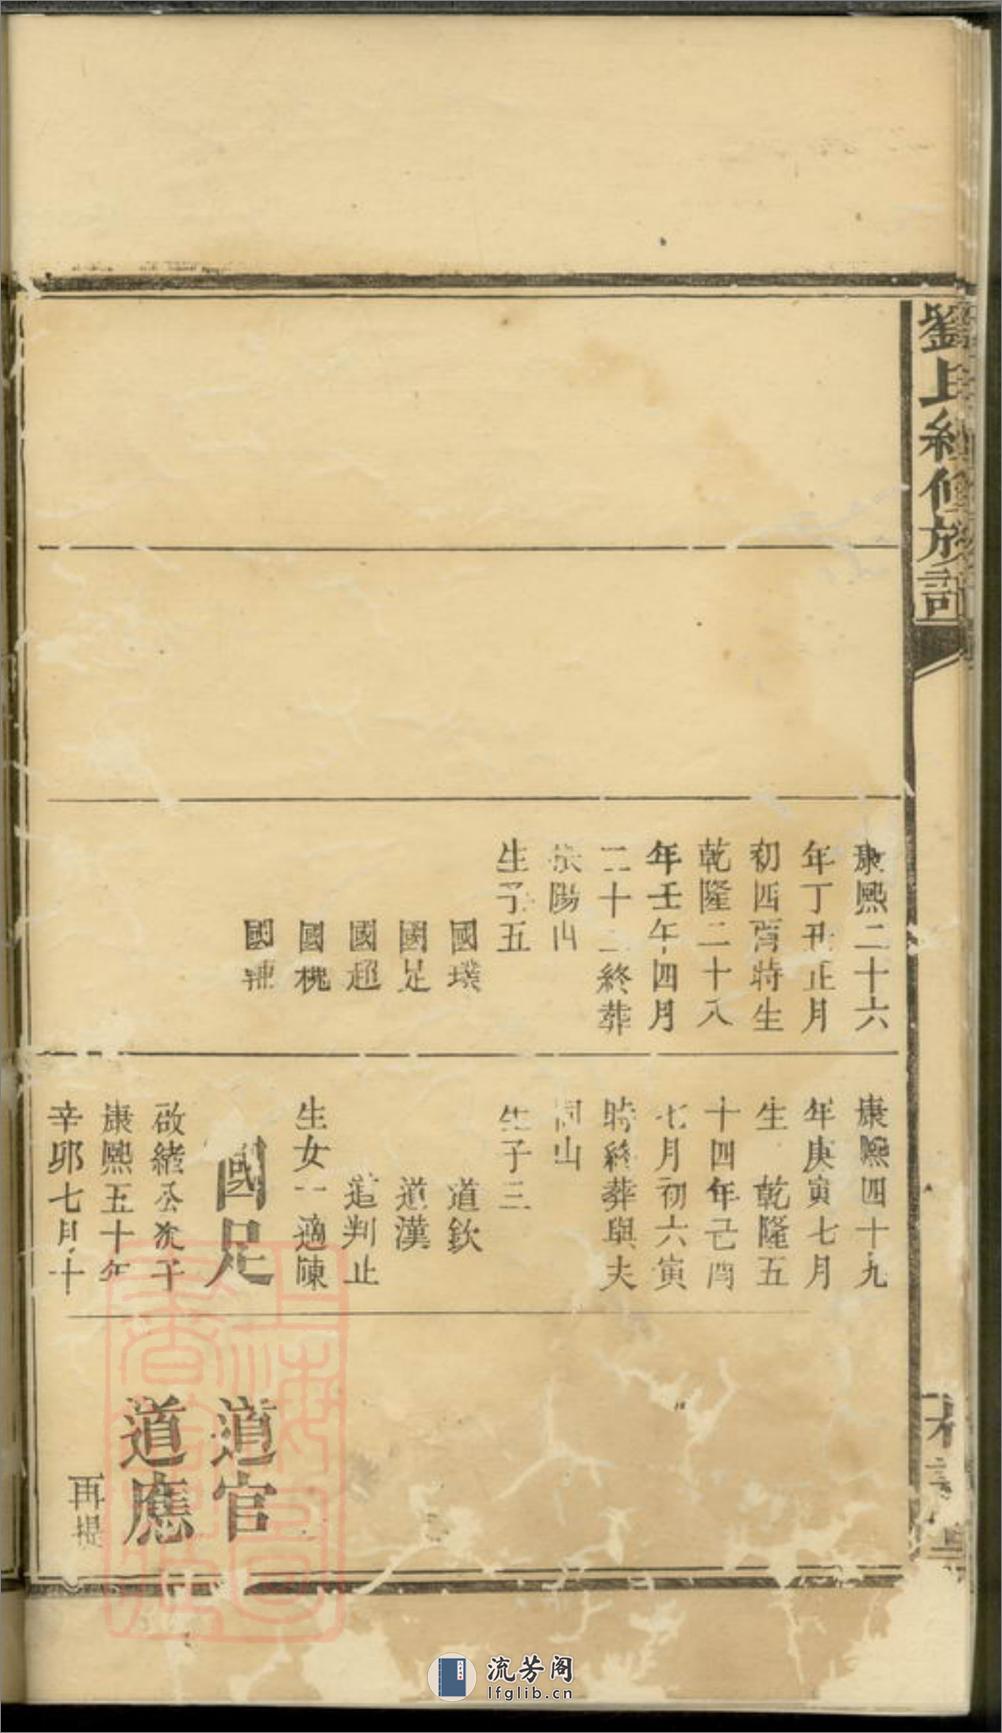 康熙二十六
年丁丑正月
初四酉時生
乾隆二十八
年壬午四月
二十二終葬
陽山
生子五
國璞
國足
國超
國槐
國
康熙四十九
年庚寅七月
生 乾隆五
十四年己酉
七月初六寅
時終葬與夫
同山
生子三
道欽
道漢
道判止
生女一適陳
國足
啟緒公次子
康熙五十年
辛卯七月十
道官
道應
再提
劉氏續修族譜
流芳阁
lfglib.cn